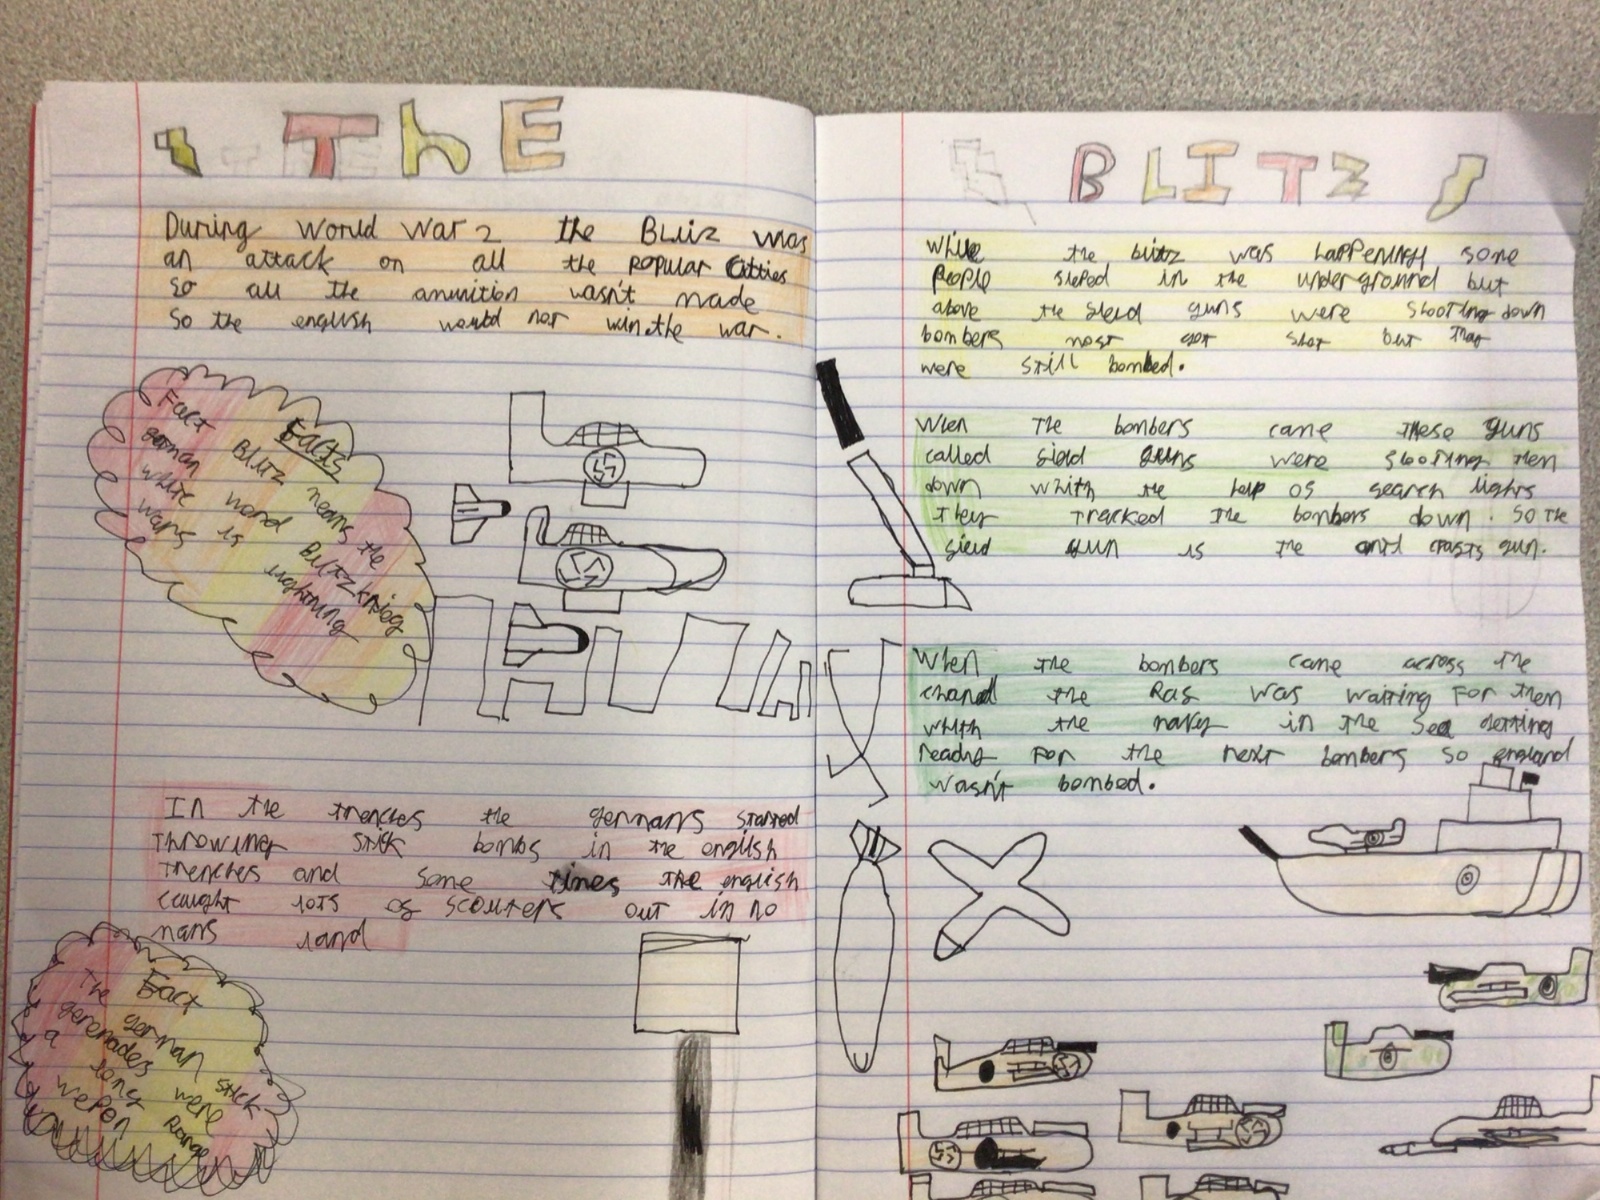 ThE
During World War 2 the BLitz was
an attack on all the popular Citties
so all the amunition wasn't made
So the english would not win the war.
Facts
Fact BLitz means the
german word is BLITZkrieg
white is lightning
wars
In the trenches the germans started
throwing stick bombs in the english
trenches and some times the english
caught lots of scouters out in no
mans land
Fact
The german stick
gerenades were
a long Range
wepon
BLITZ
While the blitz was happening some
People sleped in the underground but
above the field guns were shooting down
bombers most got shot but that
were still bombed.
When the bombers came these guns
called field guns were shooting them
down whith the help of search lights
they tracked the bombers down. So the
field gun is the anti crafts gun.
When the bombers came across the
chanel the Raf was waiting For them
whith the navy in the sea getting
ready For the next bombers so england
wasn't bombed.